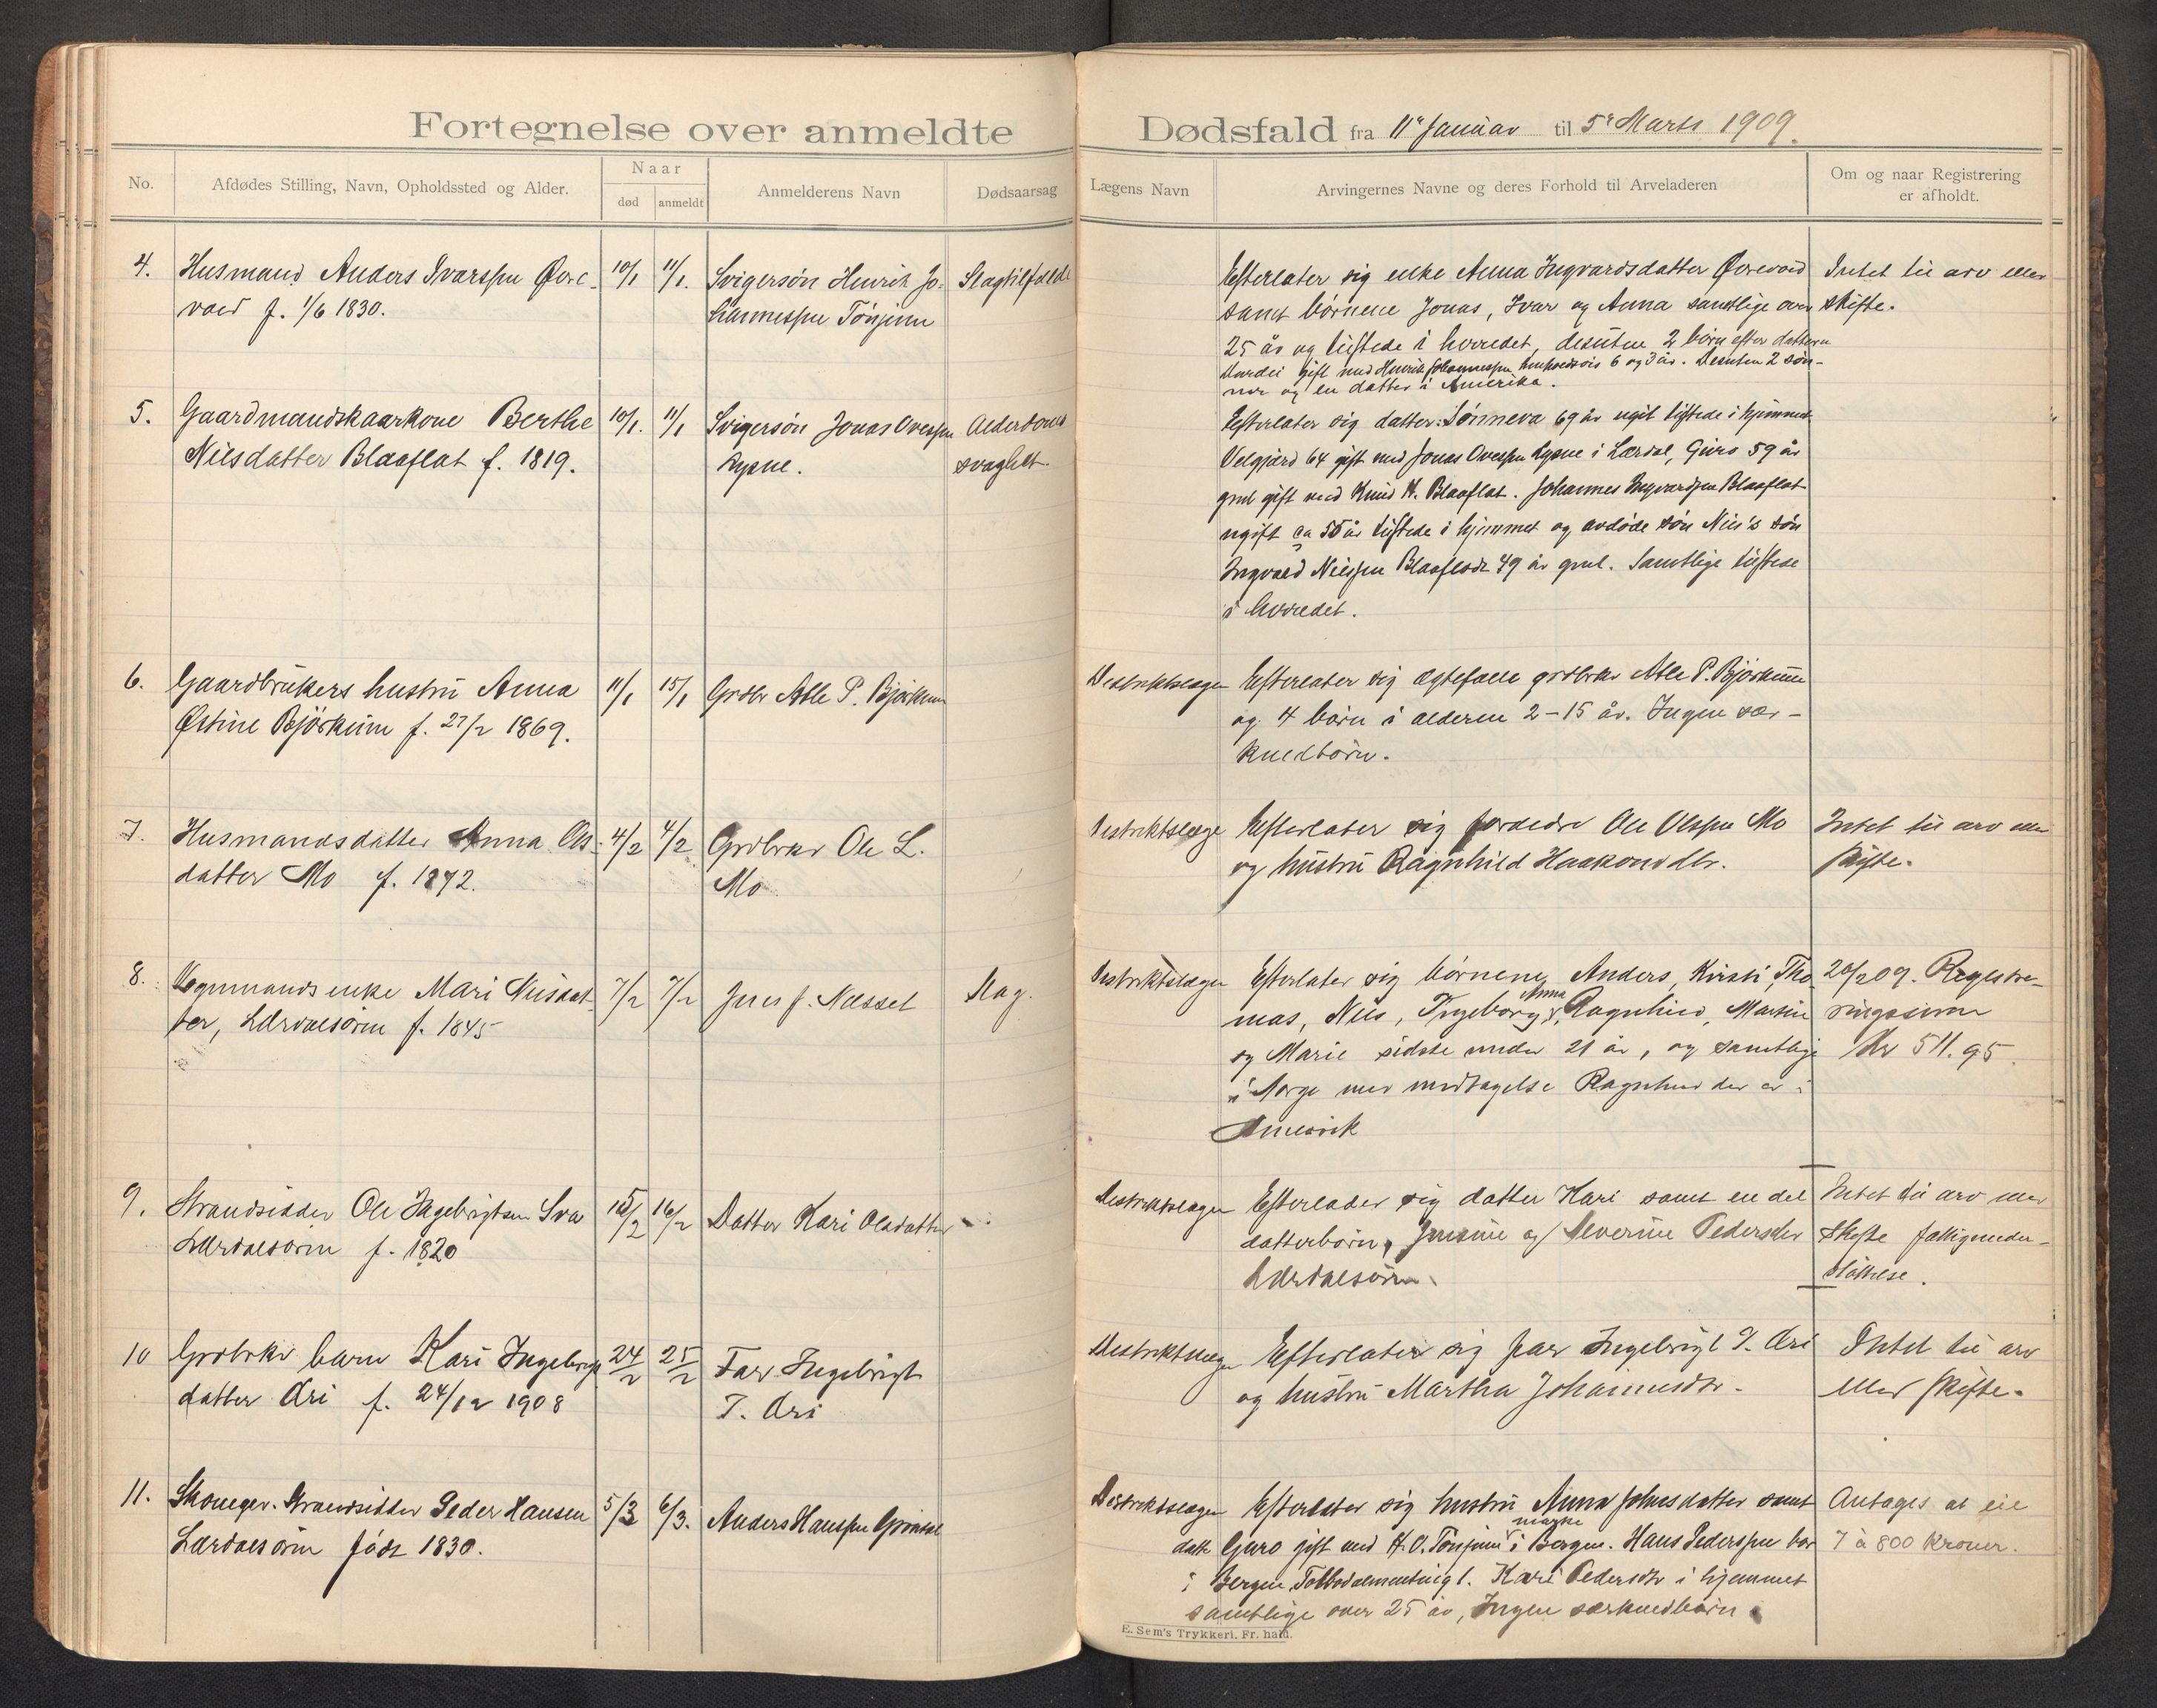 Fortegnelse over anmeldte
Dødsfald fra 11te Januar til 5te Marts 1909.
No.
Afdødes Stilling, Navn, Opholdssted og Alder.
Naar
død
anmeldt
Anmelderens Navn
Dødsaarsag
Lægens Navn
Arvingernes Navne og deres Forhold til Arveladeren
Om og naar Registrering
er afholdt.
4. Husmand Anders Ivarssen Øvre-
vold f. 1/6 1830.
10/1
11/1.
Svigersøn Henrik Jo-
hannessen Tönjum
Slagtilfælde
Efterlater sig enke Anna Ingvardsdatter Ørevold
samt börnene Jonas, Ivar og Anna samtlige over
25 år og tilstede i herredet, desuten 2 börn efter datteren
Durdei gift med Henrik Johannessen henholdsvis 6 og 3 år. Desuten 2 søn-
ner og en datter i Amerika.
Intet til arv eller
skifte.
5. Gaardmandskaarkone Berthe
Nilsdatter Blaaflat f. 1819.
10/1.
11/1
Svigersön Jonas Ovessen
Lysne.
Alderdoms
svaghet.
Efterlater sig datter: Sønneva 69 år ugift tilstede i hjemmet.
Velgjærd 64 gift med Jonas Ovessen Lysne i Lærdal, Guro 59 år
gml gift med Knud H. Blaaflat. Johannes Ingvardsen Blaaflat
ugift ca 55 år tilstede i hjemmet og avdøde søn Nils's søn
Ingvald Nilssen Blaaflat 49 år gml. Samtlige tilstede
i herredet.
6. Gaardbrukers hustru Anna
Østine Bjørkum f. 27/2 1869.
11/1
15/1
Grdbr Atle P. Bjørkum
Distriktslægen
Efterlater sig ægtefælle grdbrkr Atle P. Bjørkum
og 4 børn i alderen 2-15 år. Ingen sær-
kuldbørn.
7. Husmandsdatter Anna Ols-
datter Mo f. 1872.
4/2
4/2
Grdbrkr Ole L.
Mo
Distriktslæge
Efterlater sig forældre Ole Olssen Mo
og hustru Ragnhild Haakonsdtr.
Intet til arv eller
skifte.
8. Vognmands enke Mari Nilsdat-
ter, Lærdalsøren f. 1845
7/2
9/2
Jens J. Næsset
Slag.
Distriktslægen
Efterlater sig børnene Anders, Kirsti, Tho-
mas, Nils, Ingeborg, Anna, Ragnhild, Martin
og Marie sidste under 21 år, og samtlige
i Norge med undtagelse Ragnhild der er i
Amerik
20/2 09. Registre-
ringssum
Kr 511.95.
9. Strandsidder Ole Ingebrigtsen Sva
Lærdalsøren f. 1820
15/2
16/2
Datter Kari Olsdatter
Distriktslægen
Efterlader sig datter Kari samt en del
datterbørn, Jensine og Severine Pedersdtr
Lærdalsøren
Intet til arv eller
skifte fattigunder-
støttelse.
10 Grdbrkr barn Kari Ingebrigts
datter Æri f. 24/12 1908
24/2
25/2
Far Ingebrigt
T. Æri
Distriktslægen
Efterlater sig far Ingebrigt T. Æri
og hustru Martha Johannesdtr.
Intet til arv
eller skifte.
11. Strandsidder Peder Hansen
Lærdalsøren født 1830.
5/3
6/3.
Anders Hanssen Grøndal
Distriktslægen
Efterlater sig hustru Anna Johnsdatter samt
datter Guro gift med H.O. Tønjum i Bergen. Hans Pederssen bor
i Bergen, Tolbodalmenting 1. Kari Pedersdtr i hjemmet
samtlige over 25 år, Ingen særkuldbørn
Antages at eie
7 à 800 Kroner.
E. Sem's Trykkeri, Fr. hald.